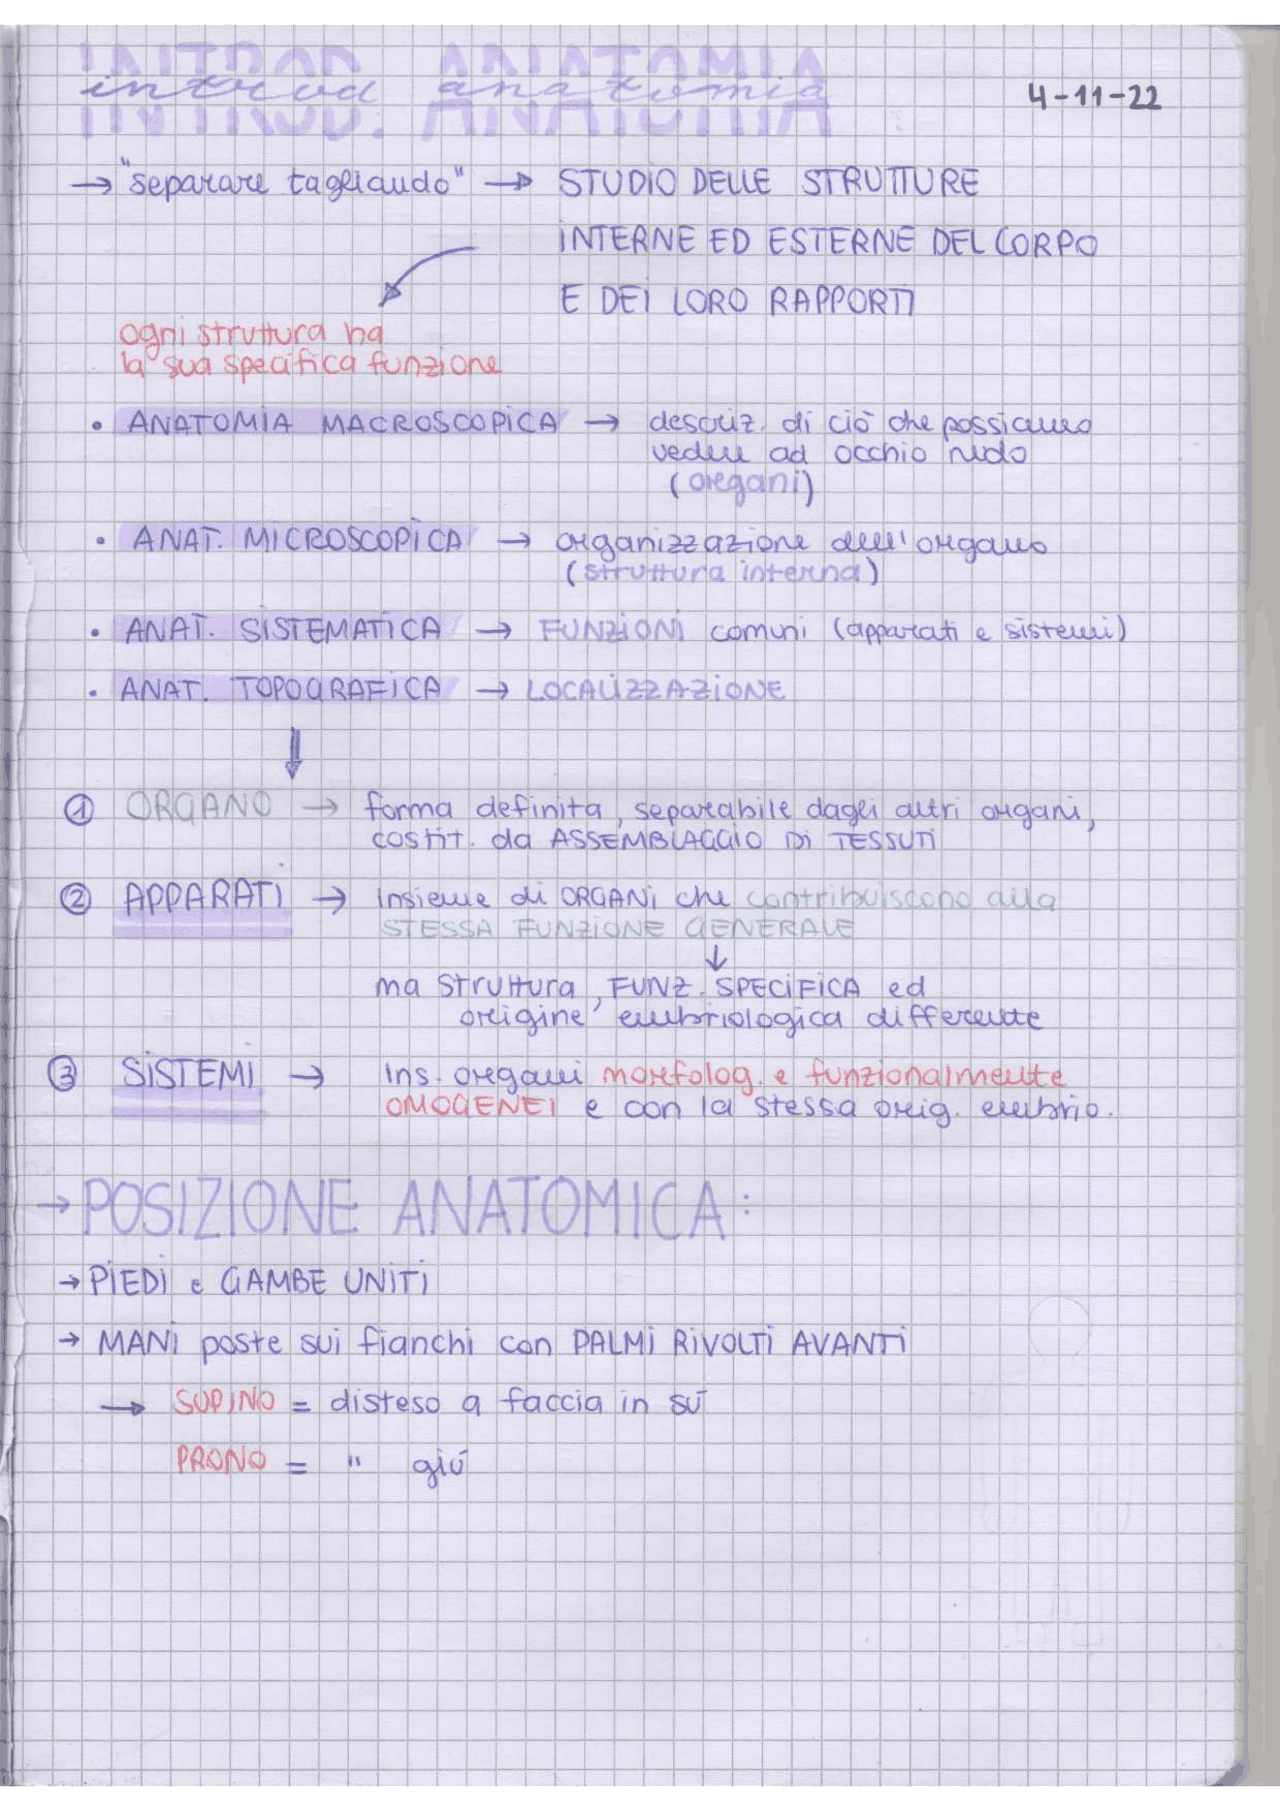 INTROD. ANATOMIA
introd anatomia
4-11-22
→ "separare tagliando" → STUDIO DELLE STRUTTURE
INTERNE ED ESTERNE DEL CORPO
E DEI LORO RAPPORTI
ogni struttura ha
la sua specifica funzione
• ANATOMIA MACROSCOPICA → descriz. di ciò che possiamo
vedere ad occhio nudo
(organi)
• ANAT. MICROSCOPICA → organizzazione dell'organo
(struttura interna)
• ANAT. SISTEMATICA → FUNZIONI comuni (apparati e sistemi)
• ANAT. TOPOGRAFICA → LOCALIZZAZIONE
① ORGANO → forma definita, separabile dagli altri organi,
costit. da ASSEMBLAGGIO DI TESSUTI
② APPARATI → insieme di ORGANI che contribuiscono alla
STESSA FUNZIONE GENERALE
↓
ma struttura, FUNZ. SPECIFICA ed
origine embriologica differente
③ SISTEMI → ins. organi morfolog. e funzionalmente
OMOGENEI e con la stessa orig. embrio.
→ POSIZIONE ANATOMICA:
→ PIEDI e GAMBE UNITI
→ MANI poste sui fianchi con PALMI RIVOLTI AVANTI
→ SUPINO = disteso a faccia in sú
PRONO = " giú